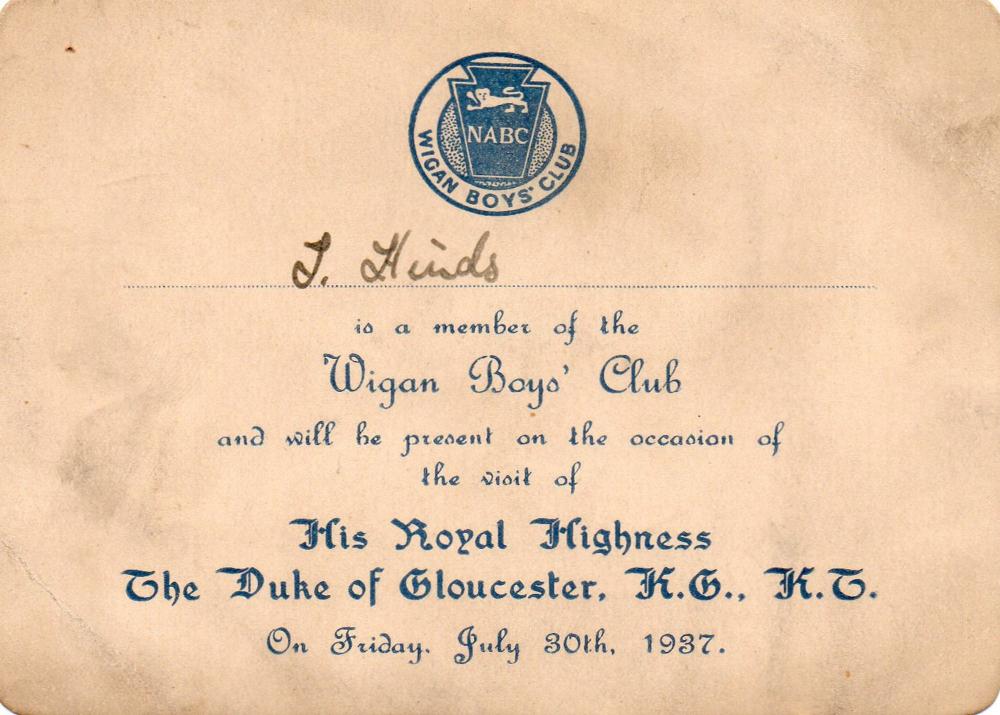 NABC
WIGAN BOYS' CLUB
J. Hinds
is a member of the
Wigan Boys' Club
and will be present on the occasion of
the visit of
His Royal Highness
The Duke of Gloucester, K.G., K.T.
On Friday, July 30th, 1937.